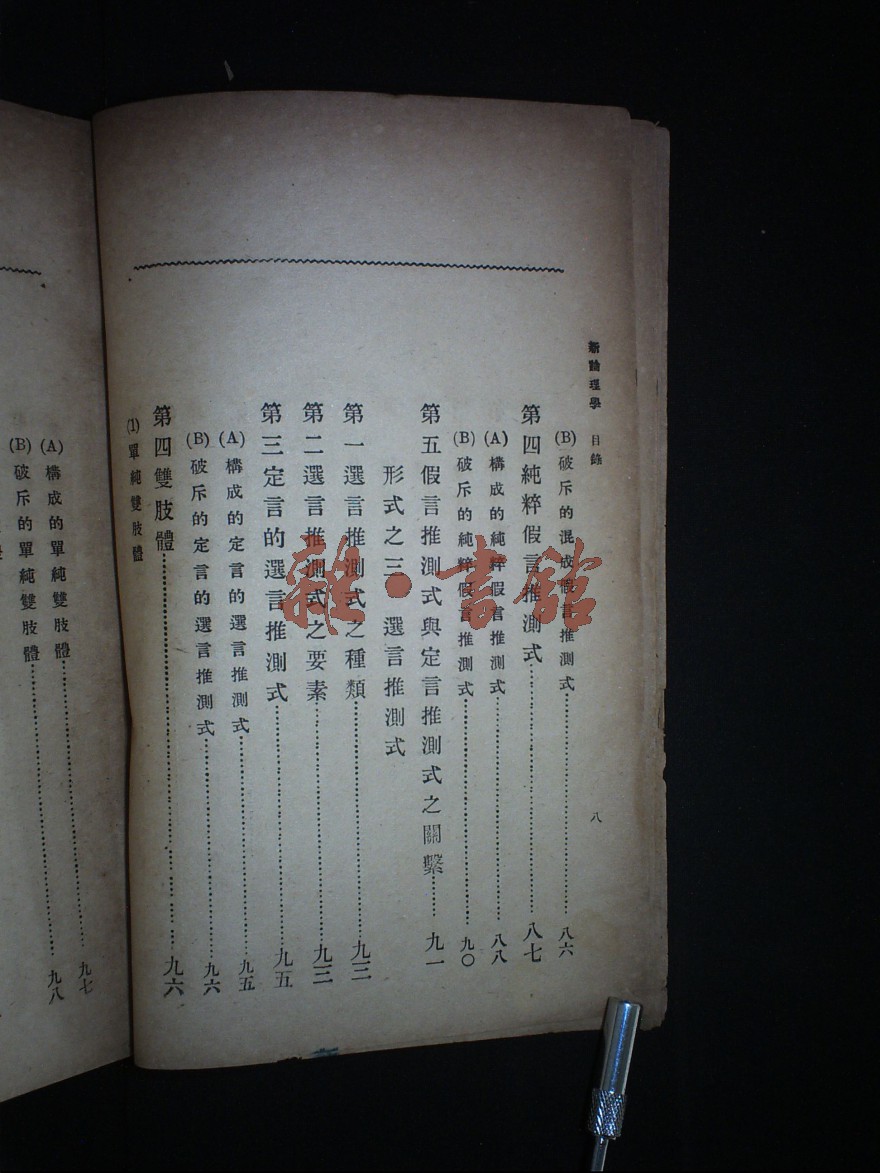 新論理學 目錄
八
(B)破斥的混成假言推測式……八六
第四純粹假言推測式……八七
(A)構成的純粹假言推測式……八八
(B)破斥的純粹假言推測式……九〇
第五假言推測式與定言推測式之關繫……九一
形式之三 選言推測式
第一選言推測式之種類……九三
第二選言推測式之要素……九三
第三定言的選言推測式……九五
(A)構成的定言的選言推測式……九五
(B)破斥的定言的選言推測式……九六
第四雙肢體……九六
(1)單純雙肢體
(A)構成的單純雙肢體……九七
(B)破斥的單純雙肢體……九八
雜·書館